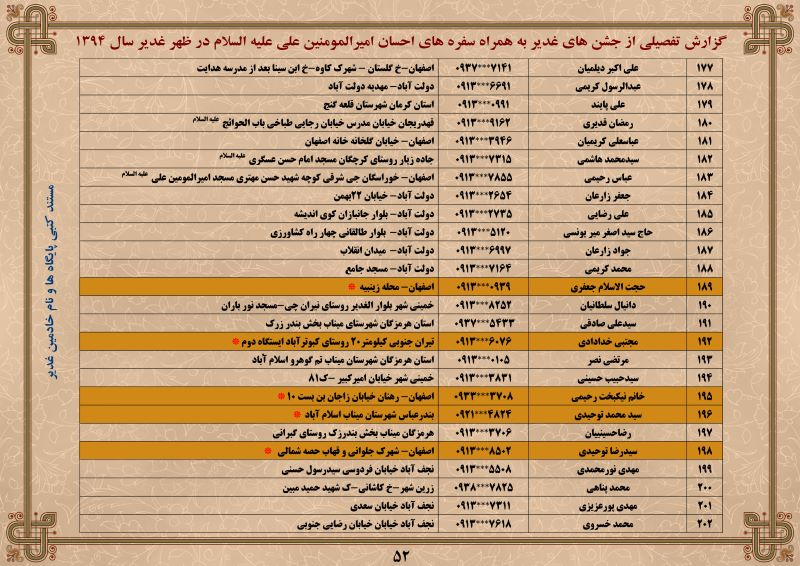 گزارش تفصیلی از جشن های غدیر به همراه سفره های احسان امیرالمومنین علی علیه السلام در ظهر غدیر سال ۱۳۹۴
۱۷۷ علی اکبر دیلمیان ۰۹۳۷***۷۱۴۱ اصفهان-خ گلستان - شهرک کاوه-خ ابن سینا بعد از مدرسه هدایت
۱۷۸ عبدالرسول کریمی ۰۹۱۳***۶۶۹۱ دولت آباد- مهدیه دولت آباد
۱۷۹ علی پابند ۰۹۱۳***۰۹۹۱ استان کرمان شهرستان قلعه گنج
۱۸۰ رمضان قدیری ۰۹۱۳***۹۱۶۲ قهدریجان خیابان مدرس خیابان رجایی طباخی باب الحوائج علیه السلام
۱۸۱ عباسعلی کریمیان ۰۹۱۳***۳۹۴۶ اصفهان- خیابان گلخانه خانه اصفهان
۱۸۲ سیدمحمد هاشمی ۰۹۱۳***۷۳۱۵ جاده زیار روستای کرچگان مسجد امام حسن عسگری علیه السلام
۱۸۳ عباس رحیمی ۰۹۱۳***۷۸۵۵ اصفهان- خوراسگان جی شرقی کوچه شهید حسن مهتری مسجد امیرالمومین علی علیه السلام
۱۸۴ جعفر زارعان ۰۹۱۳***۲۶۵۴ دولت آباد- خیابان ۲۲بهمن
۱۸۵ علی رضایی ۰۹۱۳***۲۷۳۵ دولت آباد- بلوار جانبازان کوی اندیشه
۱۸۶ حاج سید اصغر میر یونسی ۰۹۱۳***۵۱۲۰ دولت آباد- بلوار طالقانی چهار راه کشاورزی
۱۸۷ جواد زارعان ۰۹۱۳***۶۹۹۷ دولت آباد- میدان انقلاب
۱۸۸ محمد کریمی ۰۹۱۳***۷۱۶۴ دولت آباد- مسجد جامع
۱۸۹ حجت الاسلام جعفری ۰۹۱۳***۰۹۳۹ اصفهان- محله زینبیه *
۱۹۰ دانیال سلطانیان ۰۹۱۳***۸۲۵۲ خمینی شهر بلوار الغدیر روستای تیران چی-مسجد نور باران
۱۹۱ سیدعلی صادقی ۰۹۳۷***۵۴۳۳ استان هرمزگان شهرستای میناب بخش بندر زرک
۱۹۲ مجتبی خدادادی ۰۹۱۳***۶۰۷۶ تیران جنوبی کیلومتر۲۰ روستای کبوترآباد ایستگاه دوم *
۱۹۳ مرتضی نصر ۰۹۱۳***۰۱۰۵ استان هرمزگان شهرستان میناب تم گوهرو اسلام آباد
۱۹۴ سیدحبیب حسینی ۰۹۱۳***۳۸۳۱ خمینی شهر خیابان امیرکبیر -ک۸۱
۱۹۵ خانم نیکبخت رحیمی ۰۹۳۳***۳۷۰۸ اصفهان- رهنان خیابان زاجان بن بست ۱۰ *
۱۹۶ سید محمد توحیدی ۰۹۲۱***۴۸۲۴ بندرعباس شهرستان میناب اسلام آباد *
۱۹۷ رضاحسینییان ۰۹۱۳***۳۷۰۶ هرمزگان میناب بخش بندرزک روستای گبرانی
۱۹۸ سیدرضا توحیدی ۰۹۱۳***۸۵۰۲ اصفهان- شهرک جلوانی و قهاب حصه شمالی *
۱۹۹ مهدی نورمحمدی ۰۹۱۳***۵۵۰۸ نجف آباد خیابان فردوسی سیدرسول حسنی
۲۰۰ محمد پناهی ۰۹۳۸***۷۸۲۵ زرین شهر-خ کاشانی-ک شهید حمید مبین
۲۰۱ مهدی پورعزیزی ۰۹۱۳***۷۳۱۱ نجف آباد خیابان سعدی
۲۰۲ محمد خسروی ۰۹۱۳***۷۶۱۸ نجف آباد خیابان خیابان رضایی جنوبی
مستند کتبی پایگاه ها و نام خادمین غدیر
۵۲